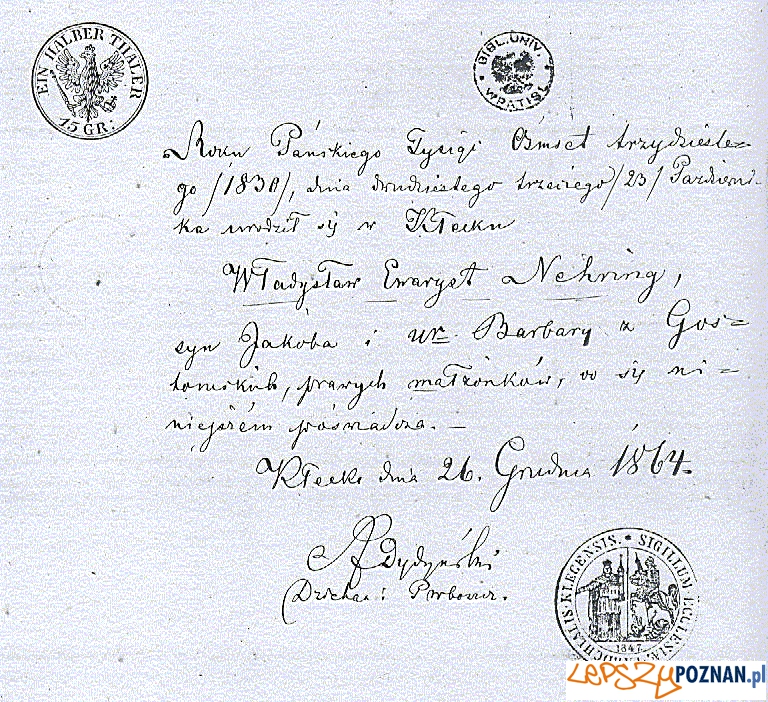 EIN HALBER THALER
15 GR:
BIBL. UNIV.
WRATISL
Roku Pańskiego Tysiąc Ośmset trzydzieste=
go /1830/, dnia dwudziestego trzeciego /23/ Październi=
ka urodził się w Kłecku
Władysław Ewaryst Nehring,
syn Jakóba i ur. Barbary z Gos=
tomskich, prawych małżonków, co się ni=
niejszém poświadcza. —
Kłecko dnia 26. Grudnia 1864.
A Dydyński
Dziekan i Proboszcz.
SIGILLUM ECCLESIAE PAROCHIALIS KLECENSIS.
1847
LEPSZYPOZNAN.pl